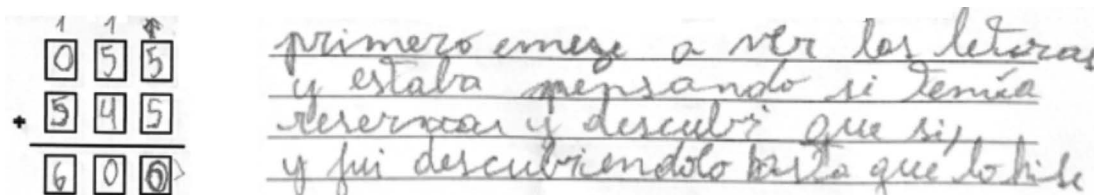 1 1
0 5 5
+ 5 4 5
6 0 0
primero emeze a ver las leturas
y estaba pensando si temía
reservas y descubri que si,
y fui descubriendolo hasta que lo hise